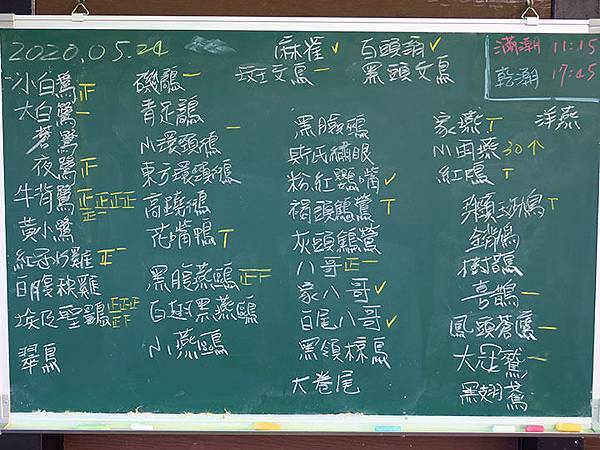 2020.05.24
麻雀✓ 白頭翁✓
斑文鳥一 黑頭文鳥
滿潮 11:15
乾潮 17:45
小白鷺正
大白鷺一
蒼鷺
夜鷺正
牛背鷺正正正正正一
黃小鷺
紅冠水雞正一
白腹秧雞
埃及聖䴉
翠鳥
磯鷸一
青足鷸
小環頸鴴一
東方環頸鴴
高蹺鴴
花嘴鴨T
黑腹燕鷗
白翅黑燕鷗
小燕鷗
黑臉
斯氏繡眼
粉紅鸚嘴✓
褐頭鷦鶯T
灰頭鷦鶯
八哥正一
家八哥✓
白尾八哥✓
黑領椋鳥
大卷尾
家燕T
洋燕
小雨燕30个
紅鳩T
珠頸斑鳩T
金背鳩
樹鵲
喜鵲一
鳳頭蒼鷹一
大冠鷲一
黑翅鳶